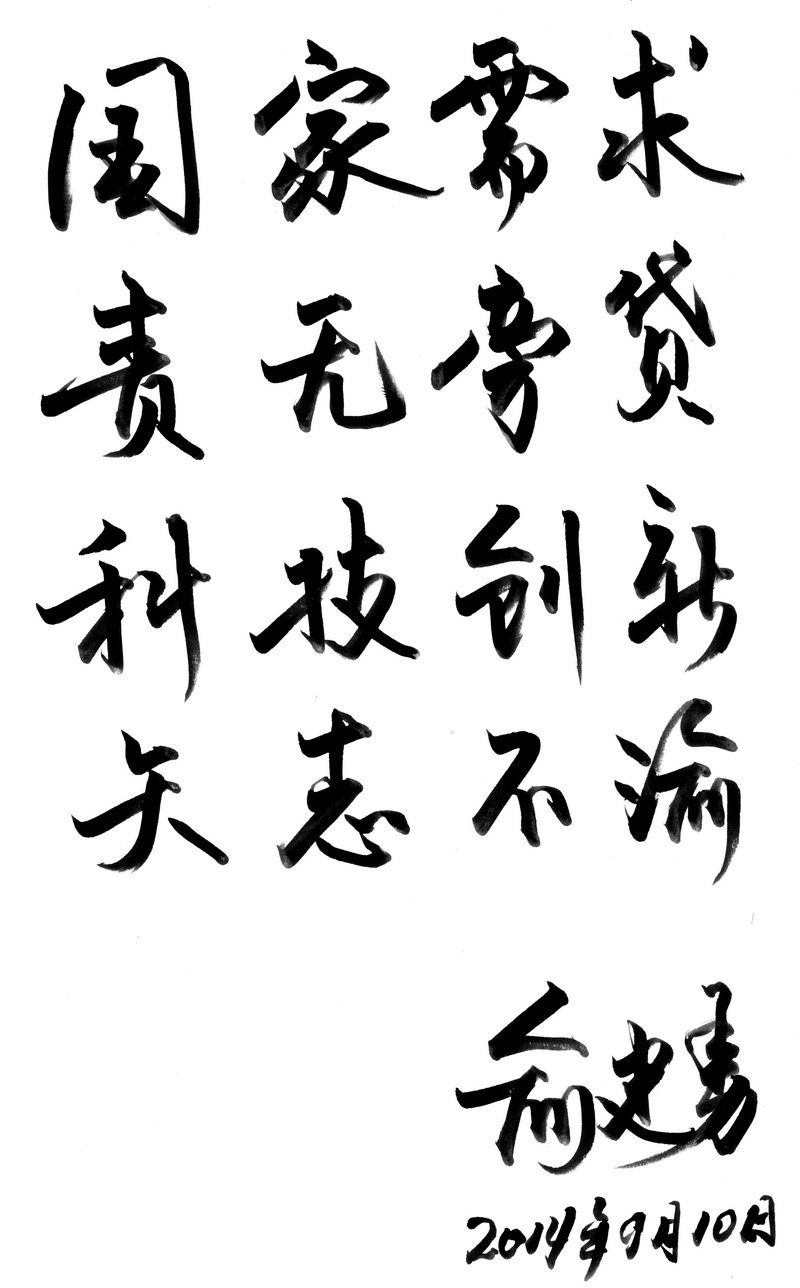 国家需求
责无旁贷
科技创新
矢志不渝
俞建勇
2014年9月10日